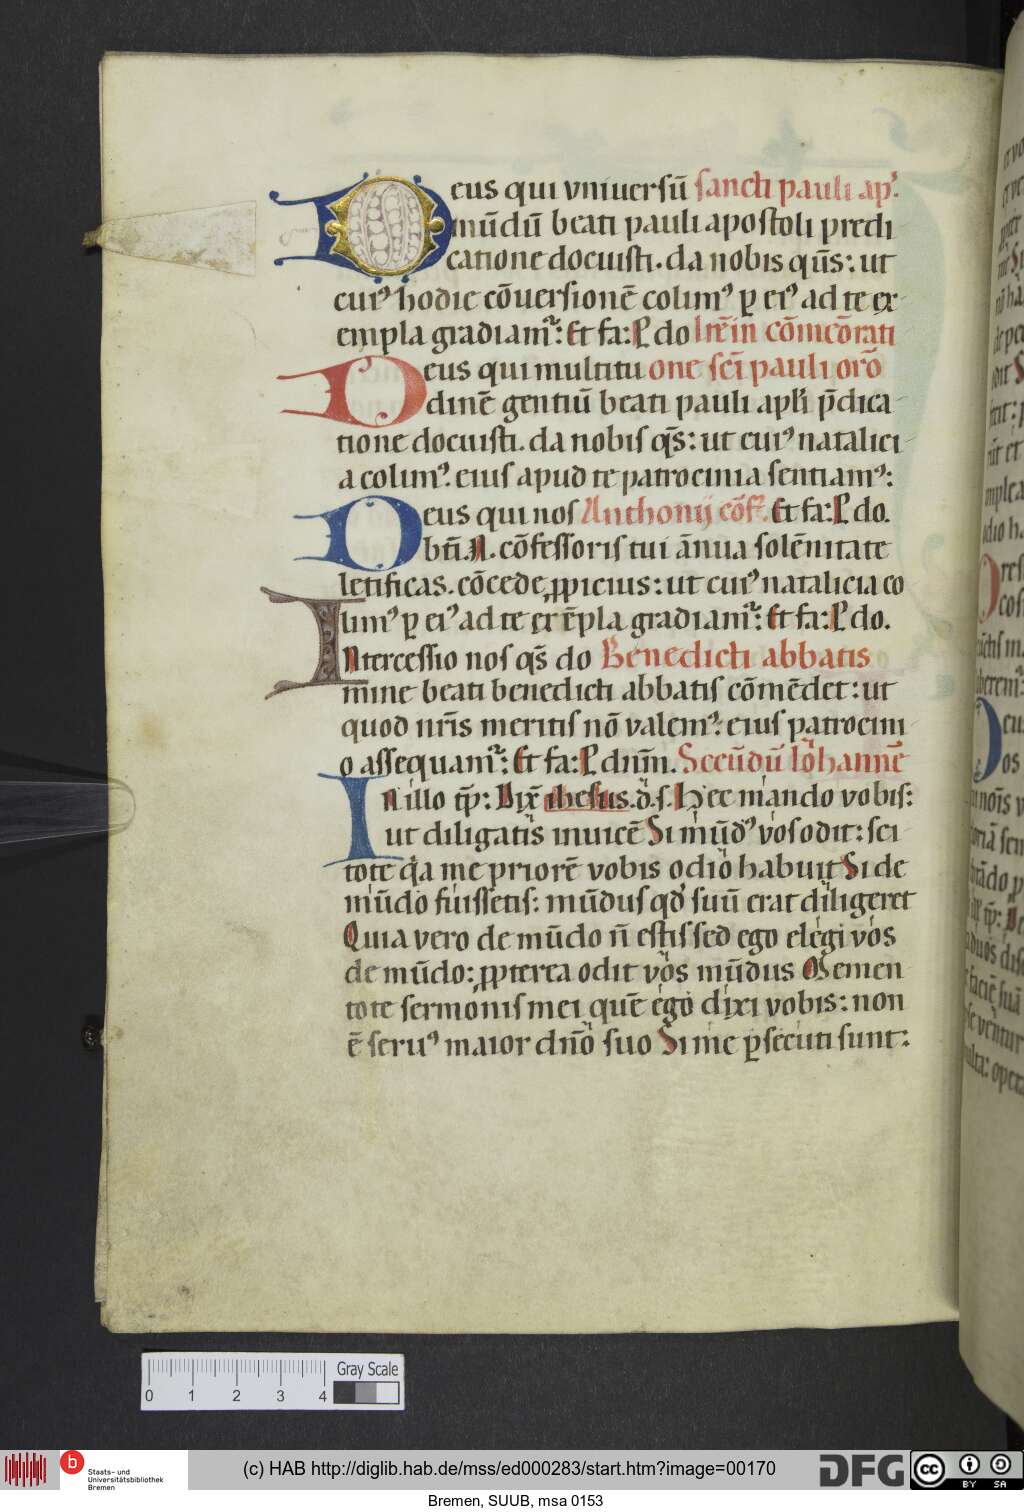 Deus qui vniuersū sancti pauli ap⁹.
mūdū beati pauli apostoli predi
catione docuisti. da nobis qūs: ut
cui⁹ hodie cōuersionē colim⁹ ꝑ ei⁹ ad te ex
empla gradiam᷑: Et fa: P do In cōmēorati
Deus qui multitu one scī pauli orō
dinē gentiū beati pauli apłi p̄dica
tione docuisti. da nobis qs̄: ut cui⁹ natalici
a colim⁹. eius apud te patrocinia sentiam⁹:
Deus qui nos Anthonij cōf. Et fa: P do.
btī. N. cōfessoris tui ānua solēnitate
letificas. cōcede ꝓpicius: ut cui⁹ natalicia co
lim⁹ ꝑ ei⁹ ad te exēpla gradiam᷑: Et fa: P do.
Intercessio nos qs̄ do Benedicti abbatis
mine beati benedicti abbatis cōmēdet: ut
quod nr̄is meritis nō valem⁹. eius patrocini
o assequam᷑: Et fa: P dnm̄. Secūdū Iohannē
In illo tp̄: Dix̄ ihesus. d. s. Hec mando vobis:
ut diligatis inuicē Si mūd⁹ vos odit: sci
tote qa me priorē vobis odio habuit Si de
mūdo fuissetis: mūdus qd̕ suū erat diligeret
Quia vero de mūdo n̄ estis sed ego elegi vos
de mūdo: ꝓpterea odit vos mūdus Memen
tote sermonis mei quē ego dixi vobis: non
ē seru⁹ maior dn̄o suo Si me ꝑsecuti sunt:
0 1 2 3 4
Gray Scale
b
Staats- und
Universitätsbibliothek
Bremen
(c) HAB http://diglib.hab.de/mss/ed000283/start.htm?image=00170
DFG
cc BY SA
Bremen, SUUB, msa 0153